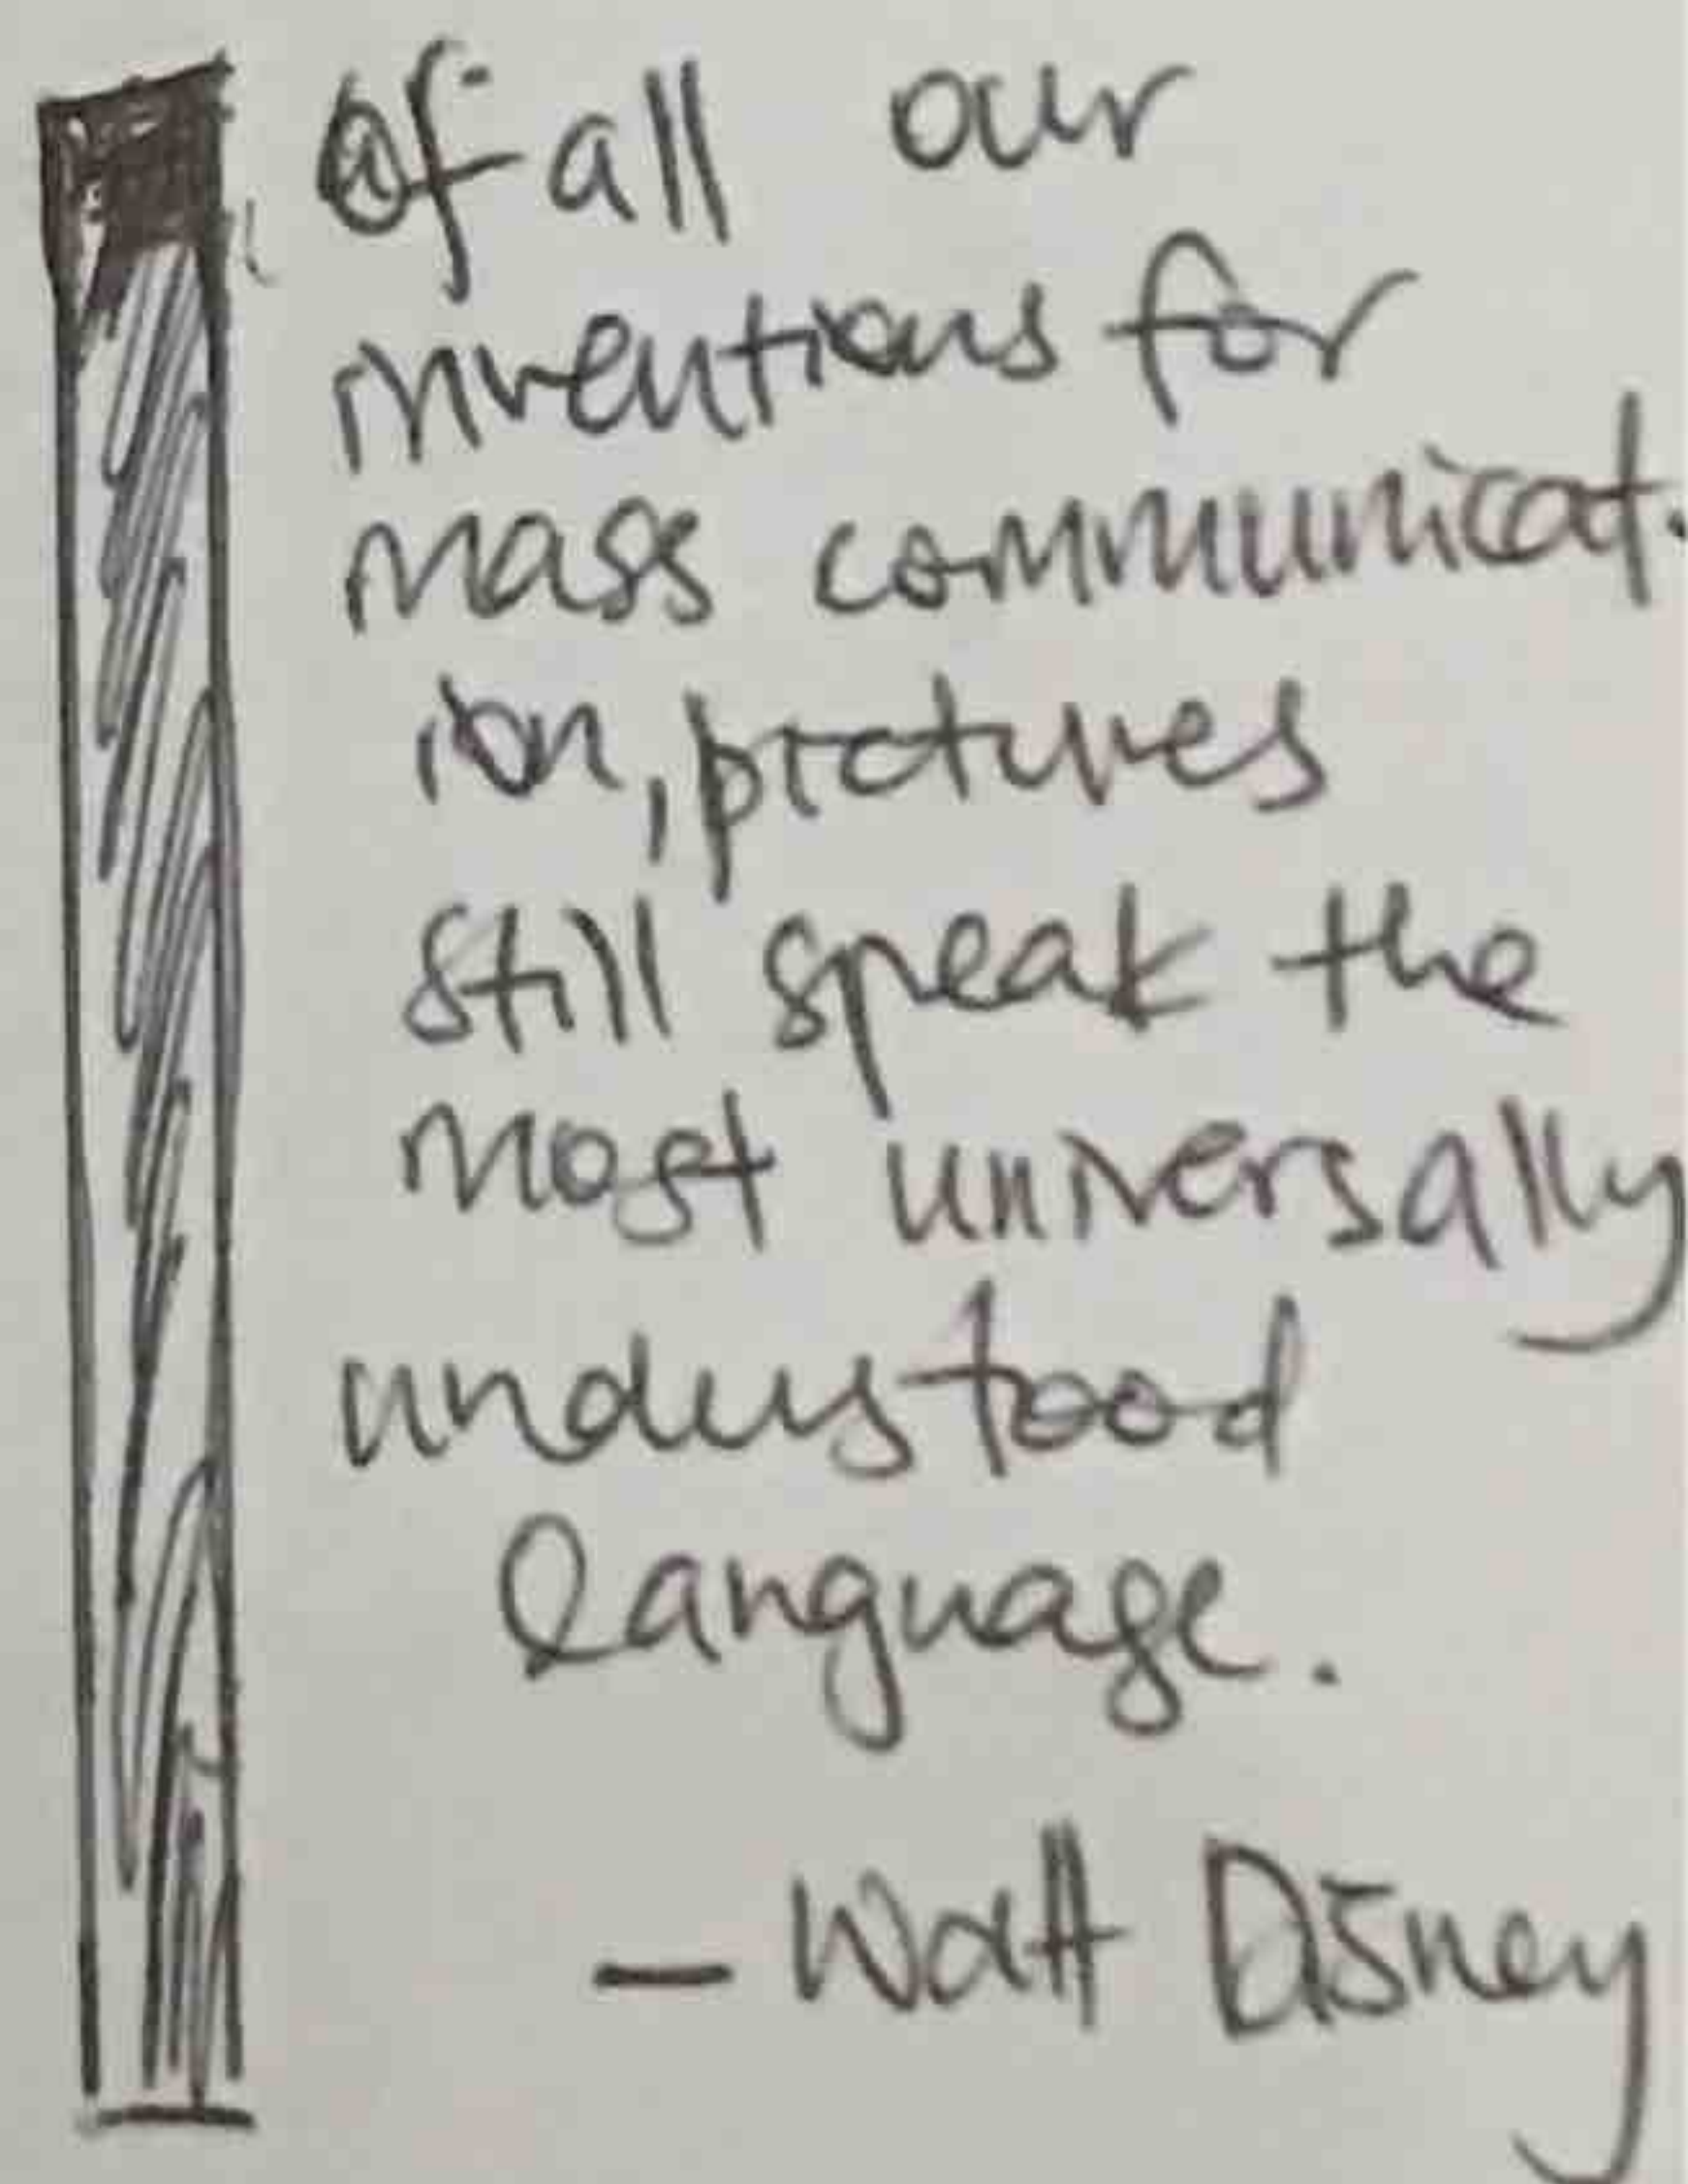 Of all our
inventions for
mass communicat.
ion, pictures
still speak the
most universally
understood
language.
- Walt Disney